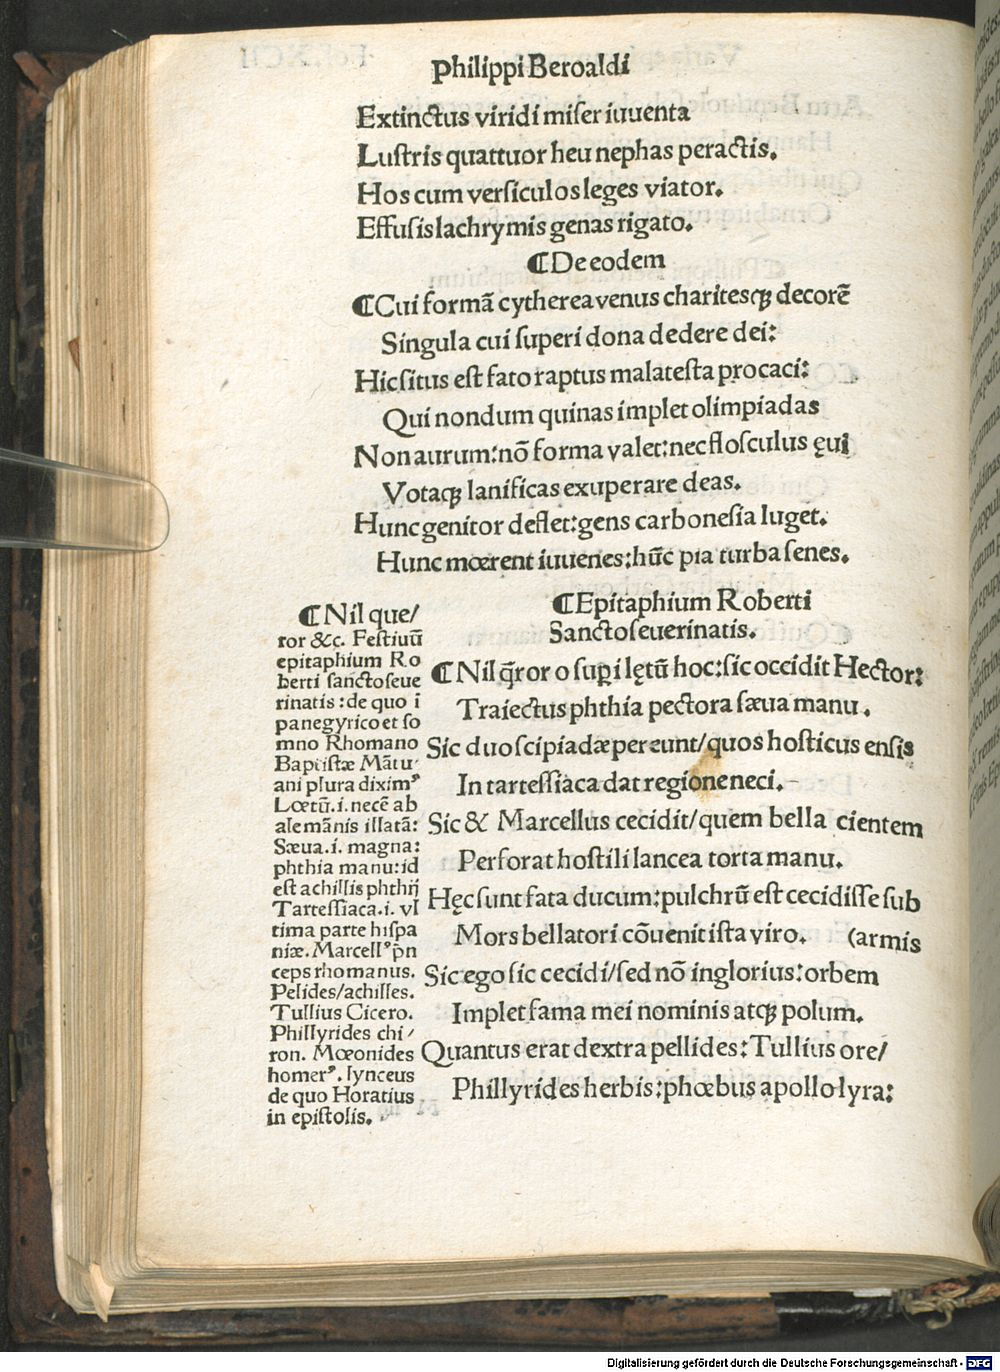 Philippi Beroaldi
Extinctus viridi miser iuuenta
Lustris quattuor heu nephas peractis.
Hos cum versiculos leges viator.
Effusis lachrymis genas rigato.
¶De eodem
¶Cui formã cytherea venus charitesqꝫ decorẽ
Singula cui superi dona dedere dei:
Hic situs est fato raptus malatesta procaci:
Qui nondum quinas implet olimpiadas
Non aurum: nõ forma valet: nec flosculus ęui
Votaqꝫ lanificas exuperare deas.
Hunc genitor deflet: gens carbonesia luget.
Hunc mœrent iuuenes: hũc pia turba senes.
¶Epitaphium Roberti
Sanctoseuerinatis.
¶Nil q̃ror o supi lętũ hoc: sic occidit Hector:
Traiectus phthia pectora sæua manu.
Sic duo scipiadæ pereunt/quos hosticus ensis
In tartessiaca dat regione neci.
Sic & Marcellus cecidit/quem bella cientem
Perforat hostili lancea torta manu.
Hęc sunt fata ducum: pulchrũ est cecidisse sub
Mors bellatori cõuenit ista viro. (armis
Sic ego sic cecidi/sed nõ inglorius: orbem
Implet fama mei nominis atqꝫ polum.
Quantus erat dextra pellides: Tullius ore/
Phillyrides herbis: phœbus apollo lyra:
¶Nil que/
ror &c. Festiuũ
epitaphium Ro
berti sanctoseue
rinatis: de quo ĩ
panegyrico et so
mno Rhomano
Baptistæ Mãtu
ani plura diximꝰ
Lœtũ. i. necẽ ab
alemãnis illatã:
Sæua. i. magna:
phthia manu: id
est achillis phthij
Tartessiaca. i. vl
tima parte hispa
niæ. Marcellꝰ p̃n
ceps rhomanus.
Pelides/achilles.
Tullius Cicero.
Phillyrides chi/
ron. Mœonides
homerꝰ. lynceus
de quo Horatius
in epistolis.
Digitalisierung gefördert durch die Deutsche Forschungsgemeinschaft - DFG